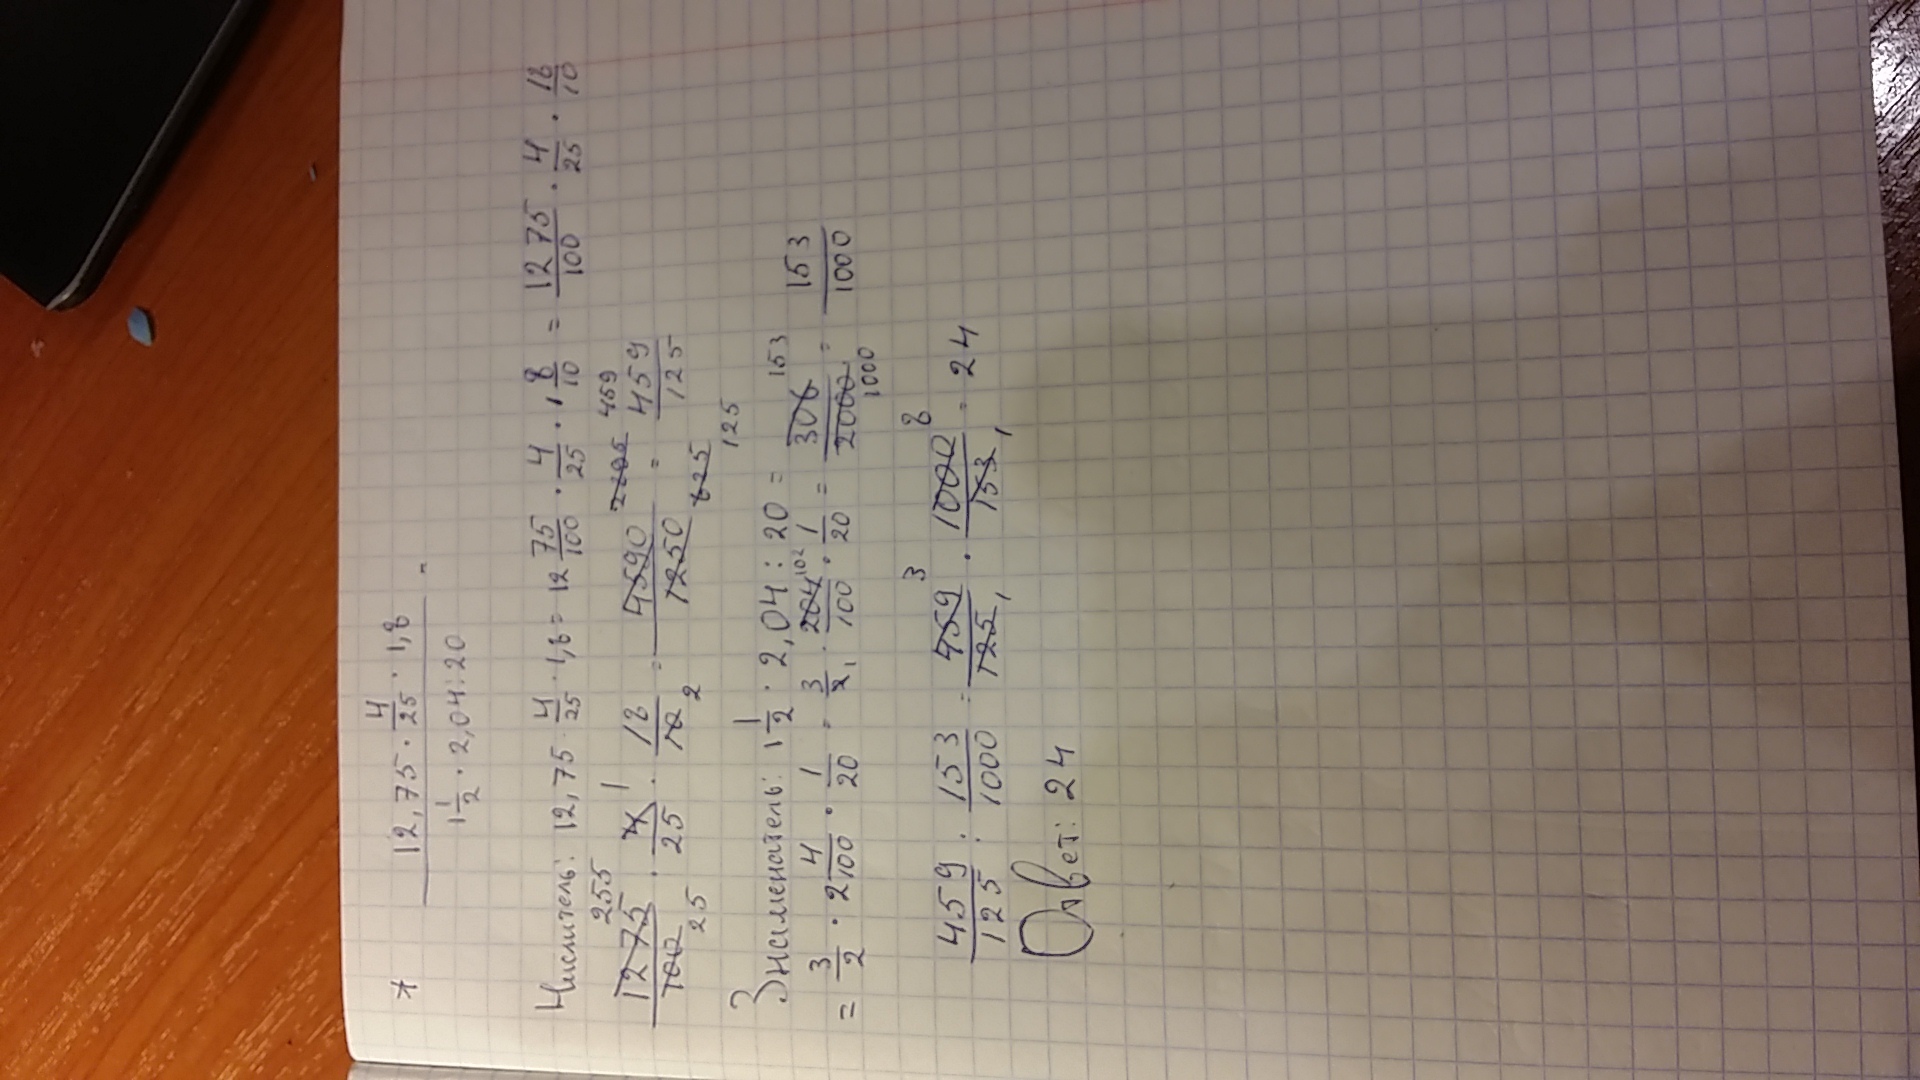 * 12,75 · 4/25 · 1,8
1 1/2 · 2,04 : 20
Числитель: 12,75 · 4/25 · 1,8 = 12 75/100 · 4/25 · 1 8/10 = 1275/100 · 4/25 · 18/10
1275/100 255 25 · 4/25 1 · 18/10 2 = 4590/1250 2295 459 625 125 = 459/125
Знаменатель: 1 1/2 · 2,04 : 20 =
= 3/2 · 2 4/100 · 1/20 = 3/2 1 · 204/100 102 · 1/20 = 306/2000 153 1000 = 153/1000
459/125 : 153/1000 = 459/125 3 1 · 1000/153 8 1 = 24
Ответ: 24